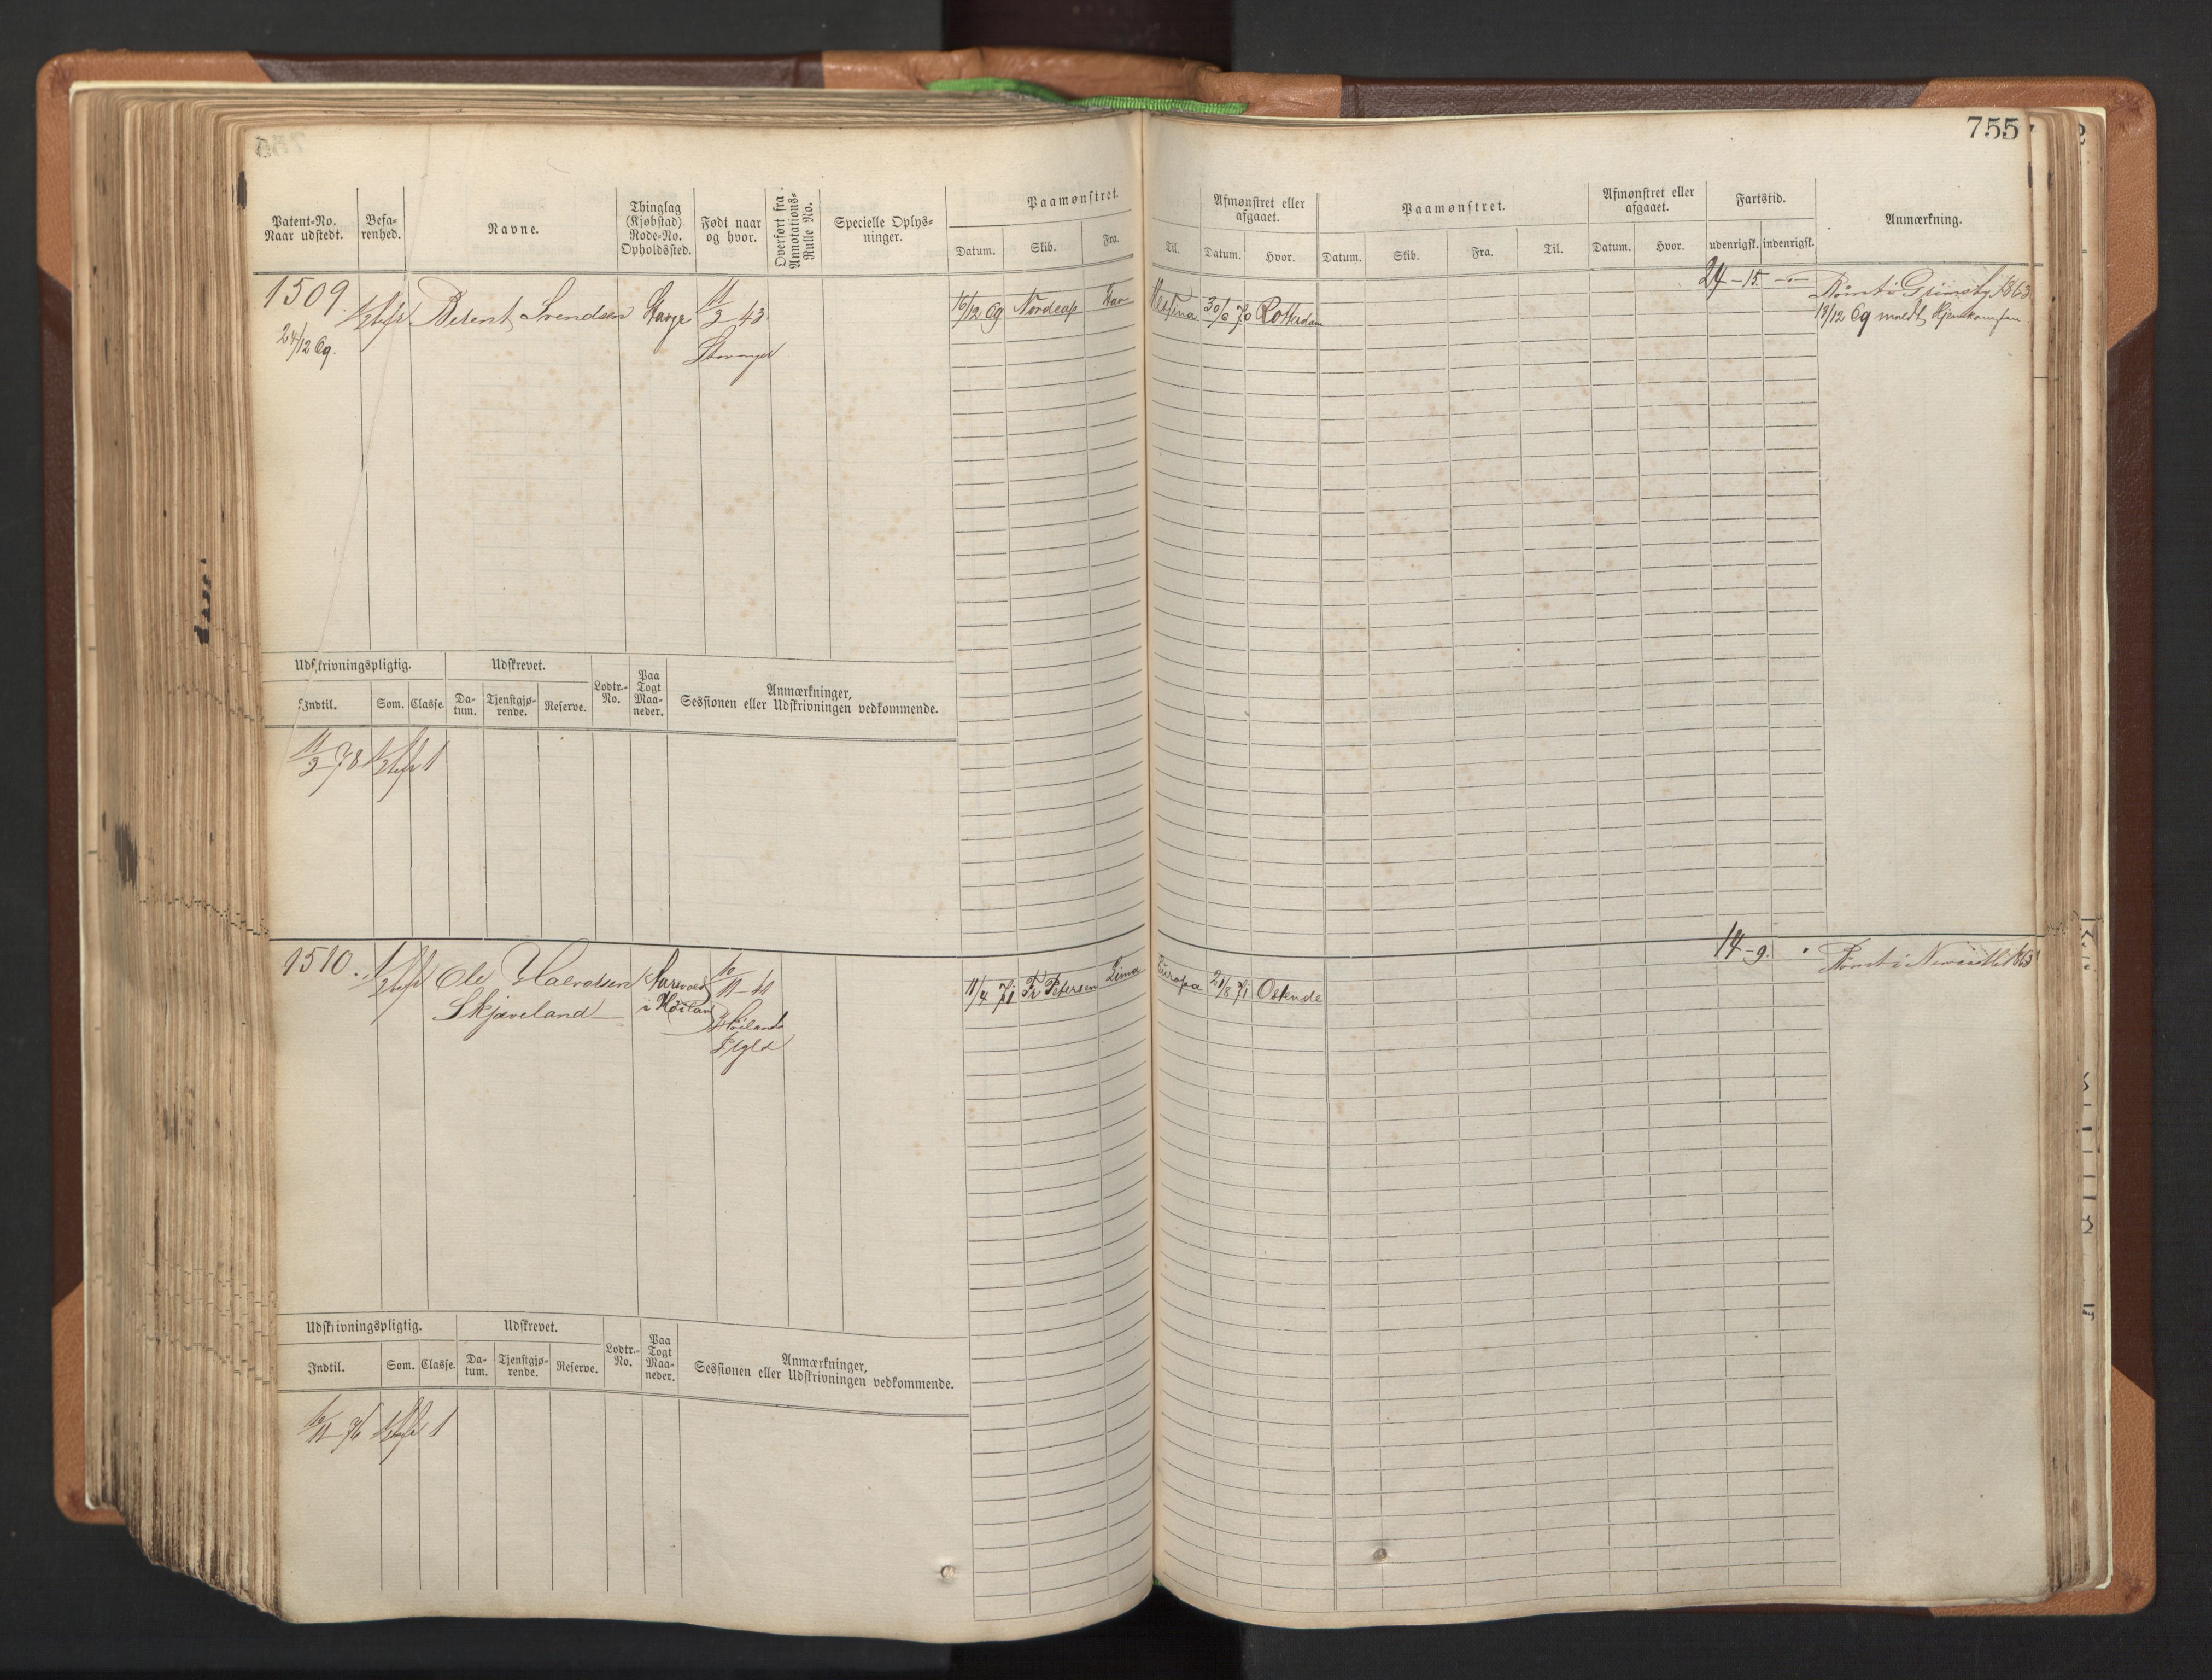 755
Patent-No.
Naar udstedt.
Befa-
renhed.
Navne.
Thinglag
(Kjøbstad)
Rode-No.
Opholdssted.
Født naar
og hvor.
Overført fra
Annotations-
Rulle No.
Specielle Oplys-
ninger.
Paamønstret.
Datum.
Skib.
Fra.
Til.
Afmønstret eller
afgaaet.
Datum.
Hvor.
Paamønstret.
Datum.
Skib.
Fra.
Til.
Afmønstret eller
afgaaet.
Datum.
Hvor.
Fartstid.
udenrigsk.
indenrigsk.
Anmærkning.
1509.
24/12 69.
Berent Svendsen
11/3 43
Stavanger
16/12 69
Nordcap
Messina
30/6 70
Rotterdam
24-15.
Rømt i Grimsby 1863
18/12 69 meldt Hjemkomsten
Udskrivningspligtig.
Indtil.
Som.
Classe.
Udskrevet.
Da-
tum.
Tjenstgjø-
rende.
Reserve.
Lodtr.-
No.
Paa
Togt
Maa-
neder.
Anmærkninger,
Sessionen eller Udskrivningen vedkommende.
11/3 78
1
1510.
Ole Halvorsen
Skjæveland
i Høiland
10/11 41
Høiland
11/4 71
Fr Petersen
Lima
Europa
21/8 71
Ostende
14-9.
Rømt i Newcastle 1863
Udskrivningspligtig.
Indtil.
Som.
Classe.
Udskrevet.
Da-
tum.
Tjenstgjø-
rende.
Reserve.
Lodtr.-
No.
Paa
Togt
Maa-
neder.
Anmærkninger,
Sessionen eller Udskrivningen vedkommende.
10/11 76
1